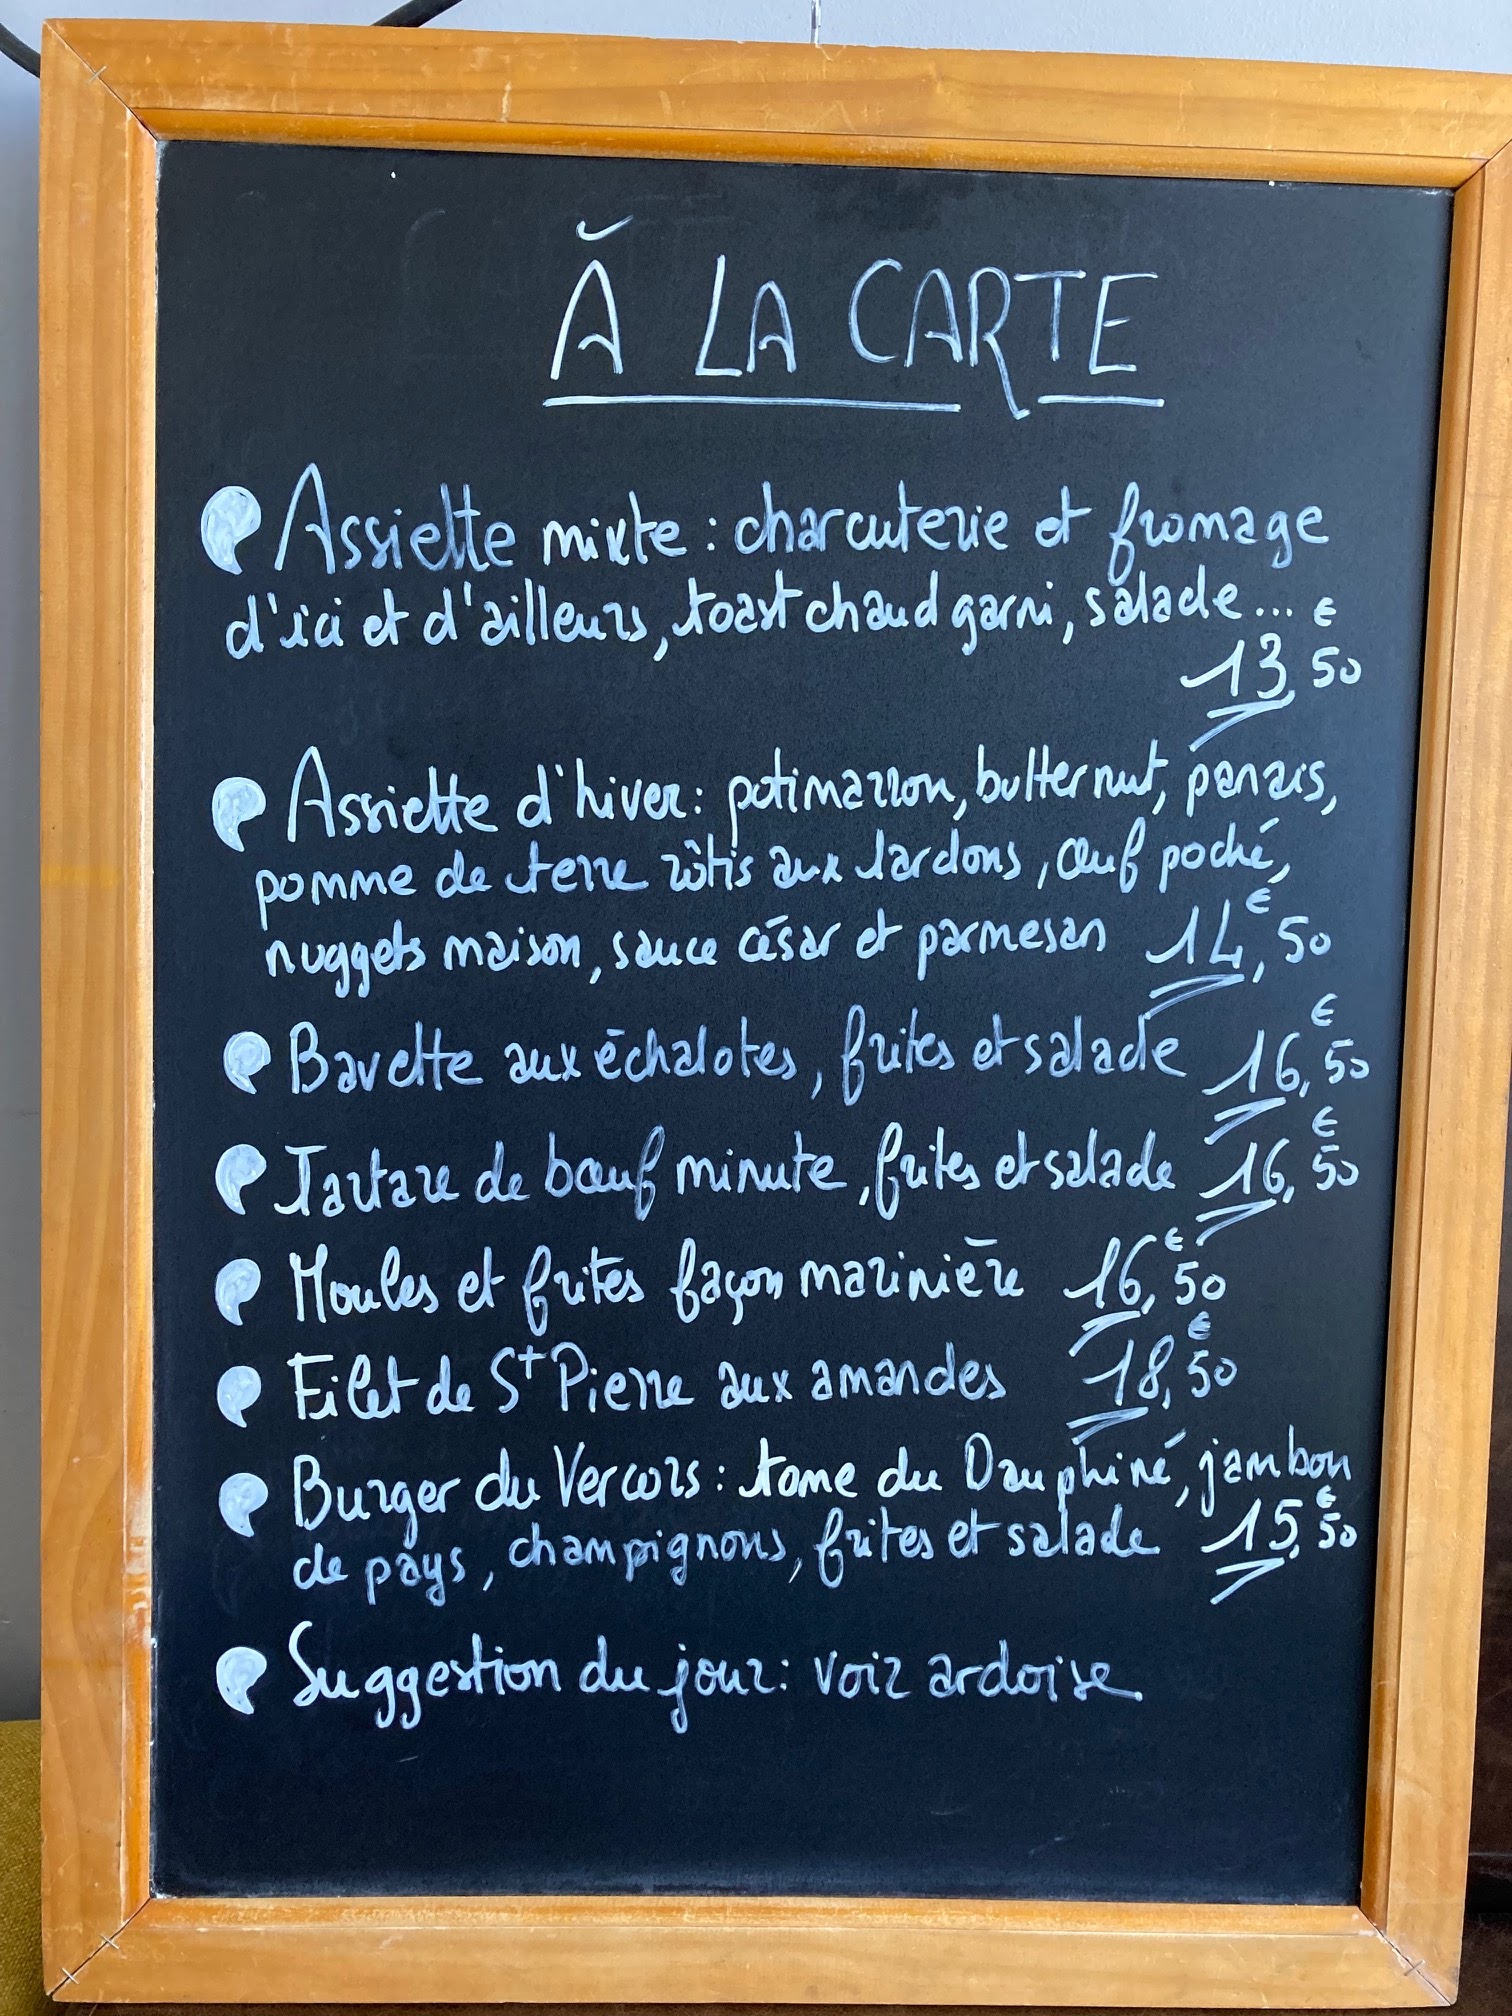 À LA CARTE
Assiette mixte : charcuterie et fromage
d'ici et d'ailleurs, toast chaud garni, salade...
13,€50
Assiette d'hiver : potimarron, butternut, panais,
pomme de terre rôtis aux lardons, œuf poché,
nuggets maison, sauce césar et parmesan 14,€50
Bavette aux échalotes, frites et salade 16,€50
Tartare de bœuf minute, frites et salade 16,€50
Moules et frites façon marinière 16,€50
Filet de St Pierre aux amandes 18,€50
Burger du Vercors : tome du Dauphiné, jambon
de pays, champignons, frites et salade 15,€50
Suggestion du jour : voir ardoise